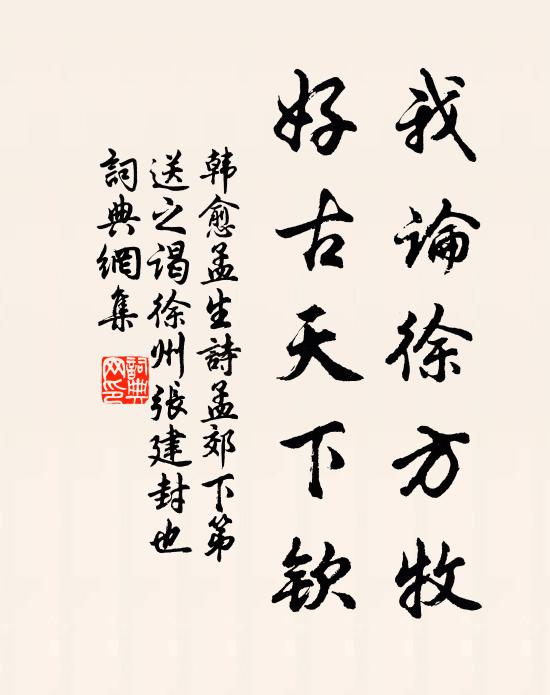 我論徐方牧
好古天下欽
韩愈孟生詩孟郊下第
送之谒徐州張建封也
詞典網集
詞典网印